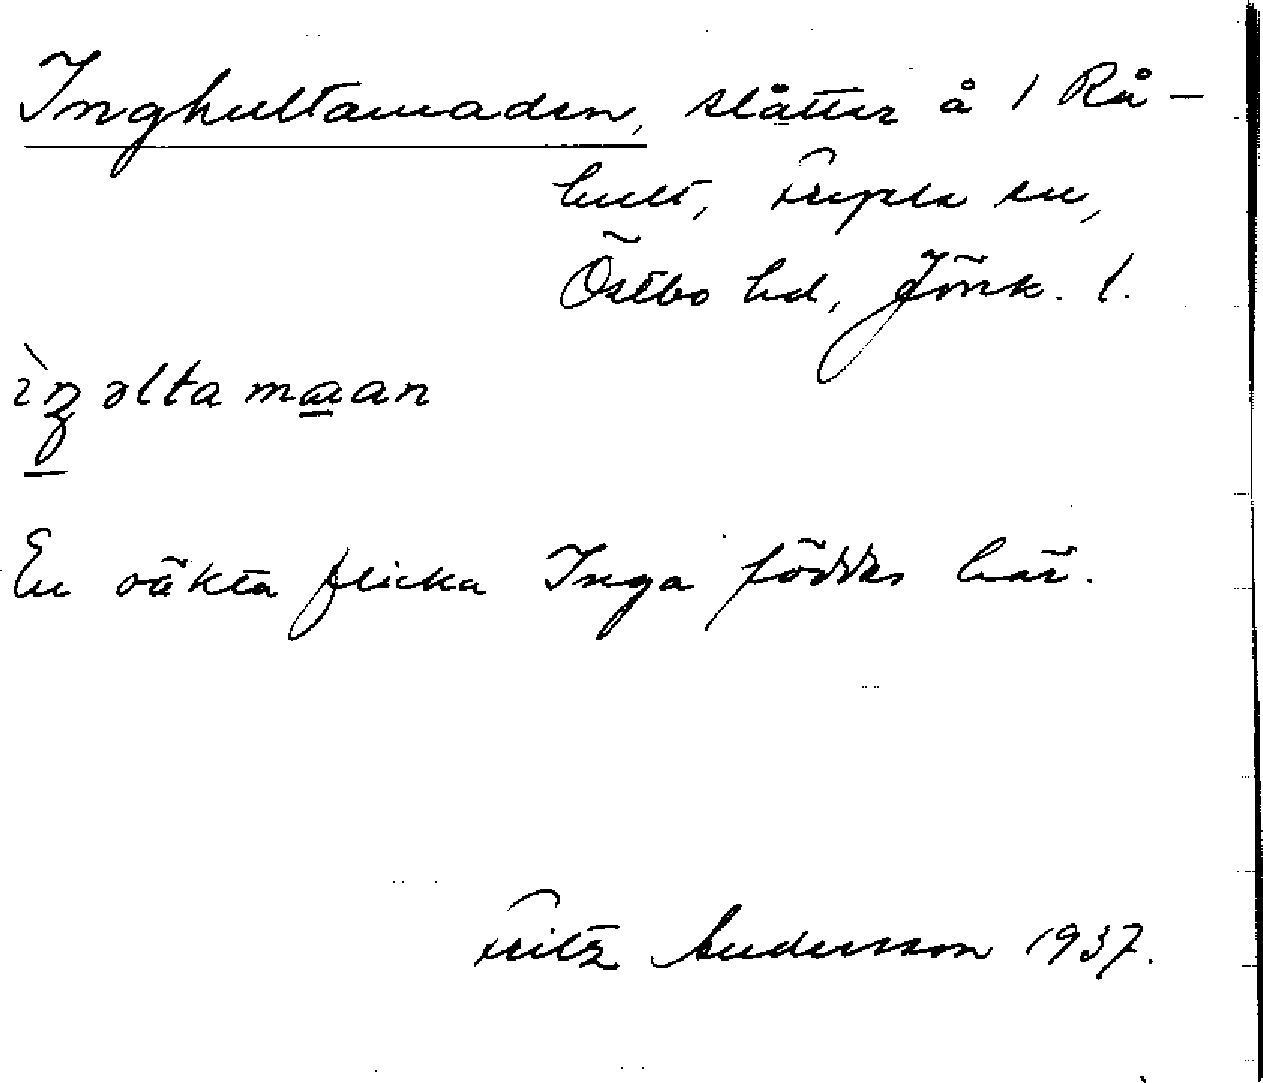 Inghultamaden, slåtter å 1 Rå-
hult, Fryele sn,
Östbo hd, Jönk. l.
En oäkta flicka Inga föddes här.
Fritz Andersson 1937.